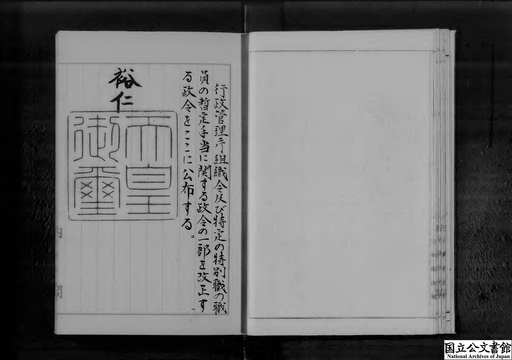 行政管理庁組織令及び特定の特別職の職
員の暫定手当に関する政令の一部を改正す
る政令をここに公布する。
裕仁
天皇
御璽
国立公文書館
National Archives of Japan